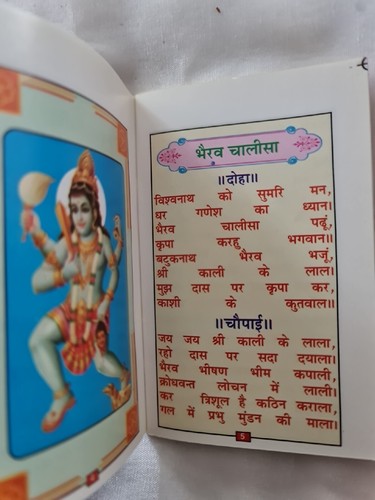 भैरव चालीसा
॥दोहा॥
विश्वनाथ को सुमरि मन,
धर गणेश का ध्यान।
भैरव चालीसा पढूं,
कृपा करहु भगवान॥
बटुकनाथ भैरव भजूं,
श्री काली के लाल।
मुझ दास पर कृपा कर,
काशी के कुतवाल॥
॥चौपाई॥
जय जय श्री काली के लाला,
रहो दास पर सदा दयाला।
भैरव भीषण भीम कपाली,
क्रोधवन्त लोचन में लाली।
कर त्रिशूल है कठिन कराला,
गल में प्रभु मुंडन की माला।
5